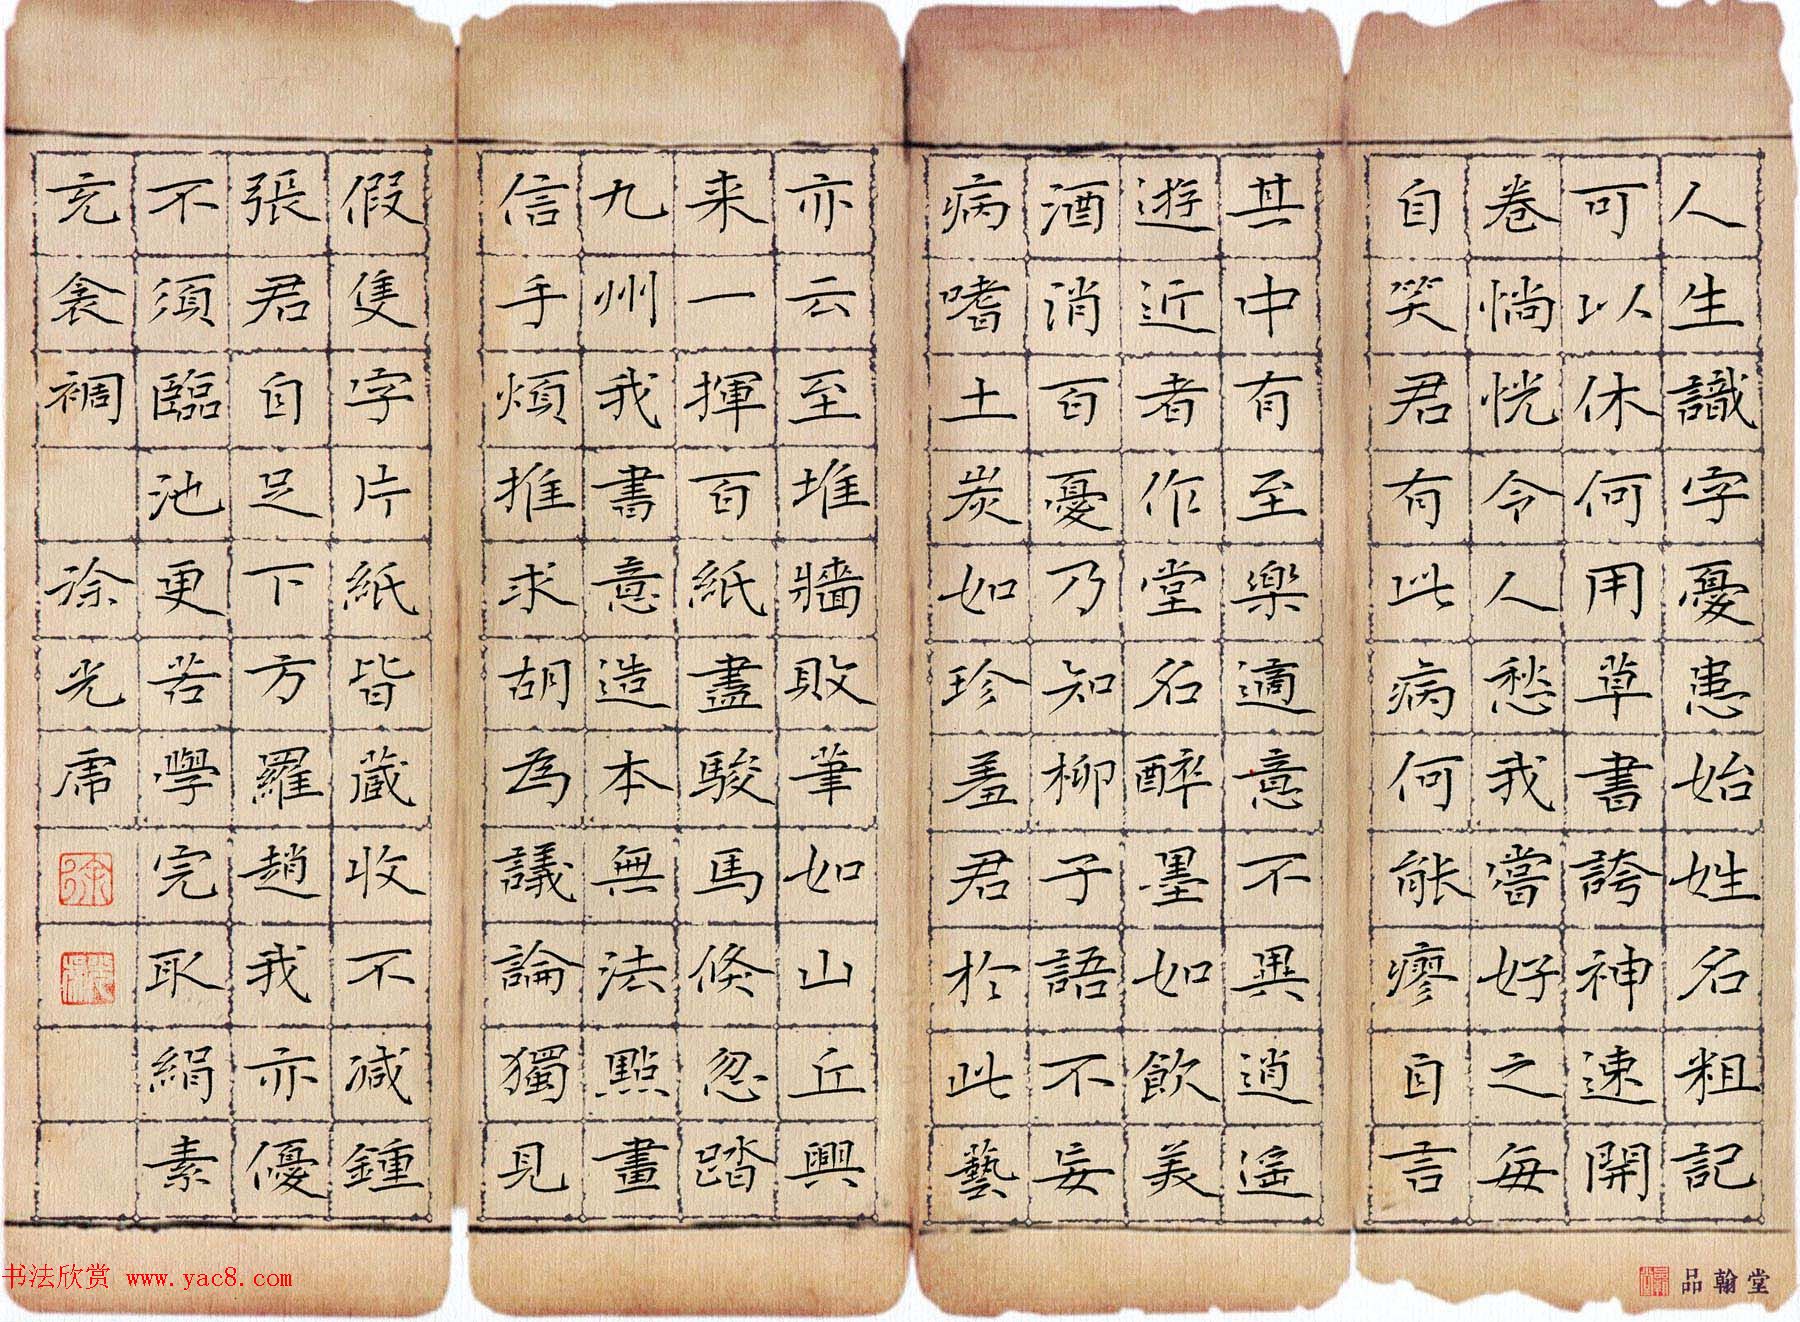 人生識字憂患始姓名粗記
可以休何用草書誇神速開
卷惝恍令人愁我嘗好之每
自笑君有此病何能瘳自言
其中有至樂適意不異逍遙
遊近者作堂名醉墨如飲美
酒消百憂乃知柳子語不妄
病嗜土炭如珍羞君於此藝
亦云至堆牆敗筆如山丘興
来一揮百紙盡駿馬倏忽踏
九州我書意造本無法點畫
信手煩推求胡為議論獨見
假隻字片紙皆藏收不減鍾
張君自足下方羅趙我亦優
不須臨池更苦學完取絹素
充衾裯 徐光
书法欣赏 www.yac8.com
品翰堂